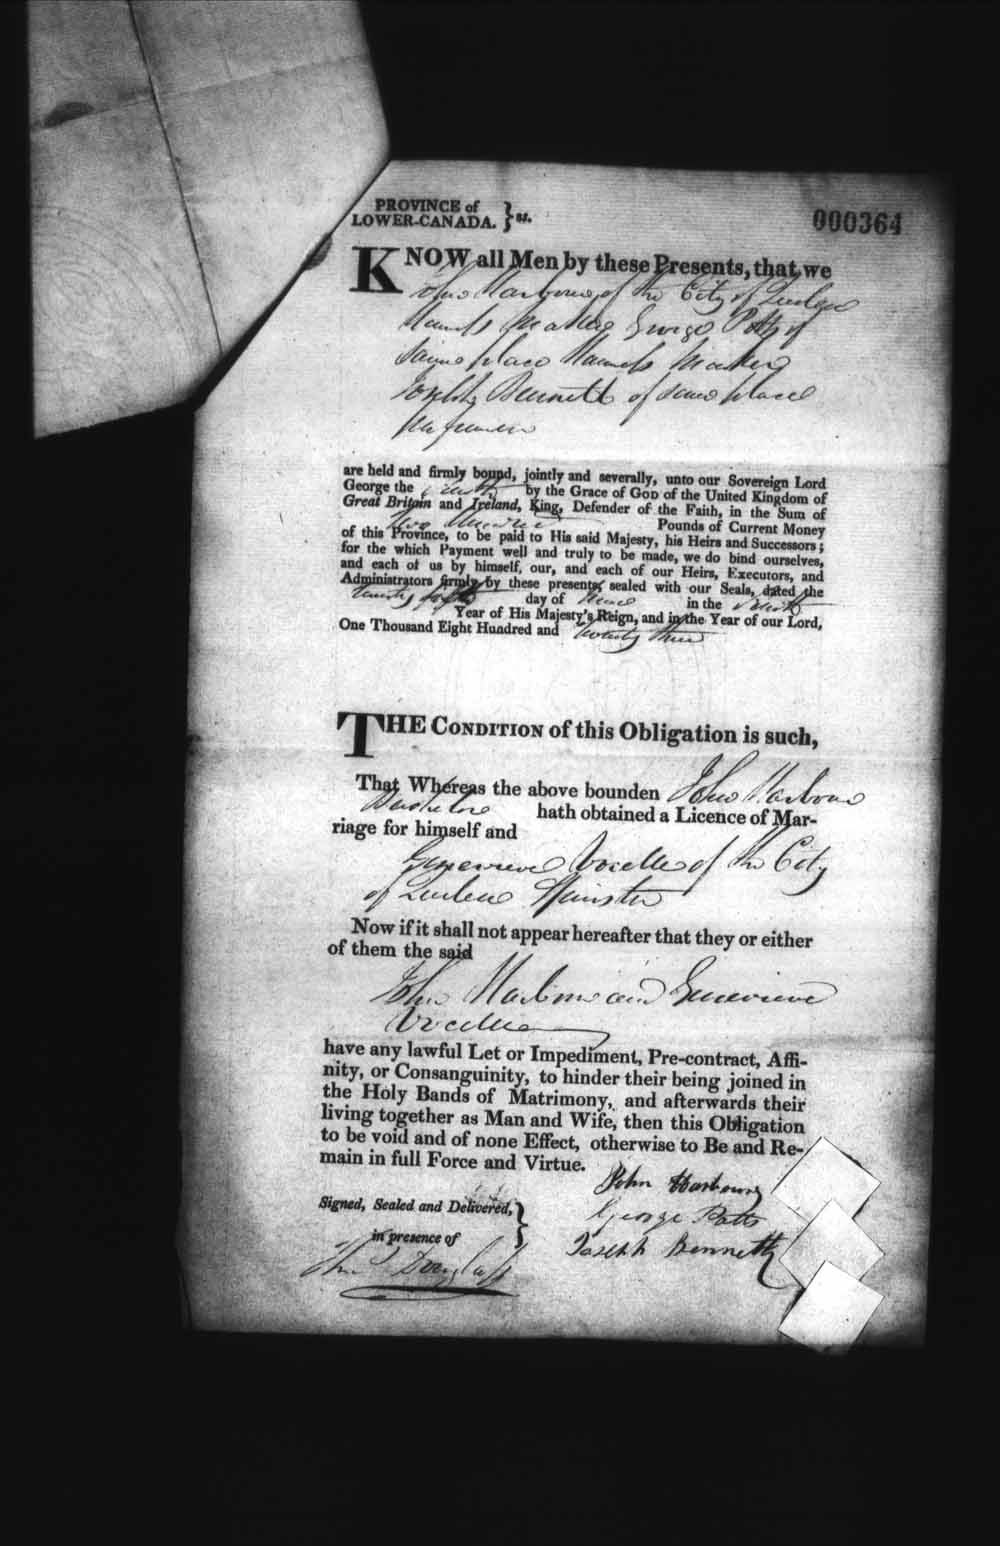 PROVINCE of
LOWER-CANADA. } ss.
000364
KNOW all Men by these Presents, that we
John Harbour of the City of Quebec
George Potts of
same place
Joseph Bennett of same place
are held and firmly bound, jointly and severally, unto our Sovereign Lord
George the fourth by the Grace of GOD of the United Kingdom of
Great Britain and Ireland, King, Defender of the Faith, in the Sum of
Two Hundred Pounds of Current Money
of this Province, to be paid to His said Majesty, his Heirs and Successors;
for the which Payment well and truly to be made, we do bind ourselves,
and each of us by himself, our, and each of our Heirs, Executors, and
Administrators firmly by these presents, sealed with our Seals, dated the
twenty day of in the
Year of His Majesty's Reign, and in the Year of our Lord,
One Thousand Eight Hundred and twenty three
THE CONDITION of this Obligation is such,
That Whereas the above bounden John Harbour
Bachelor hath obtained a Licence of Mar-
riage for himself and
Genevieve Vocelle of the City
of Quebec Spinster
Now if it shall not appear hereafter that they or either
of them the said
John Harbour and Genevieve
Vocelle
have any lawful Let or Impediment, Pre-contract, Affi-
nity, or Consanguinity, to hinder their being joined in
the Holy Bands of Matrimony, and afterwards their
living together as Man and Wife, then this Obligation
to be void and of none Effect, otherwise to Be and Re-
main in full Force and Virtue.
John Harbour
Signed, Sealed and Delivered, }
George Potts
in presence of
Joseph Bennett
Douglass